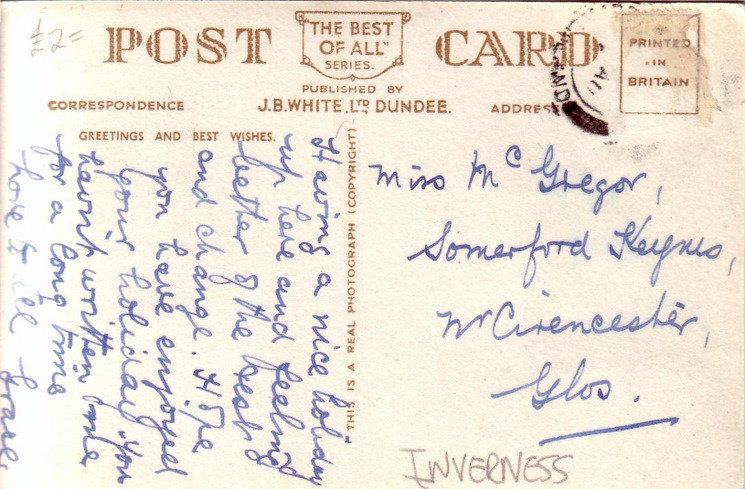 £2=
POST CARD
"THE BEST
OF ALL"
SERIES.
PUBLISHED BY
J.B. WHITE, LTD DUNDEE.
CORRESPONDENCE
ADDRESS
PRINTED
IN
BRITAIN
GREETINGS AND BEST WISHES.
THIS IS A REAL PHOTOGRAPH (COPYRIGHT)
Having a nice holiday
up here and feeling
better of the rest
and change. Hope
you have enjoyed
your holiday. You
havn't written me
for a long time
love to all Grace.
Miss McGregor,
Somerford Keynes,
Nr Cirencester,
Glos.
INVERNESS